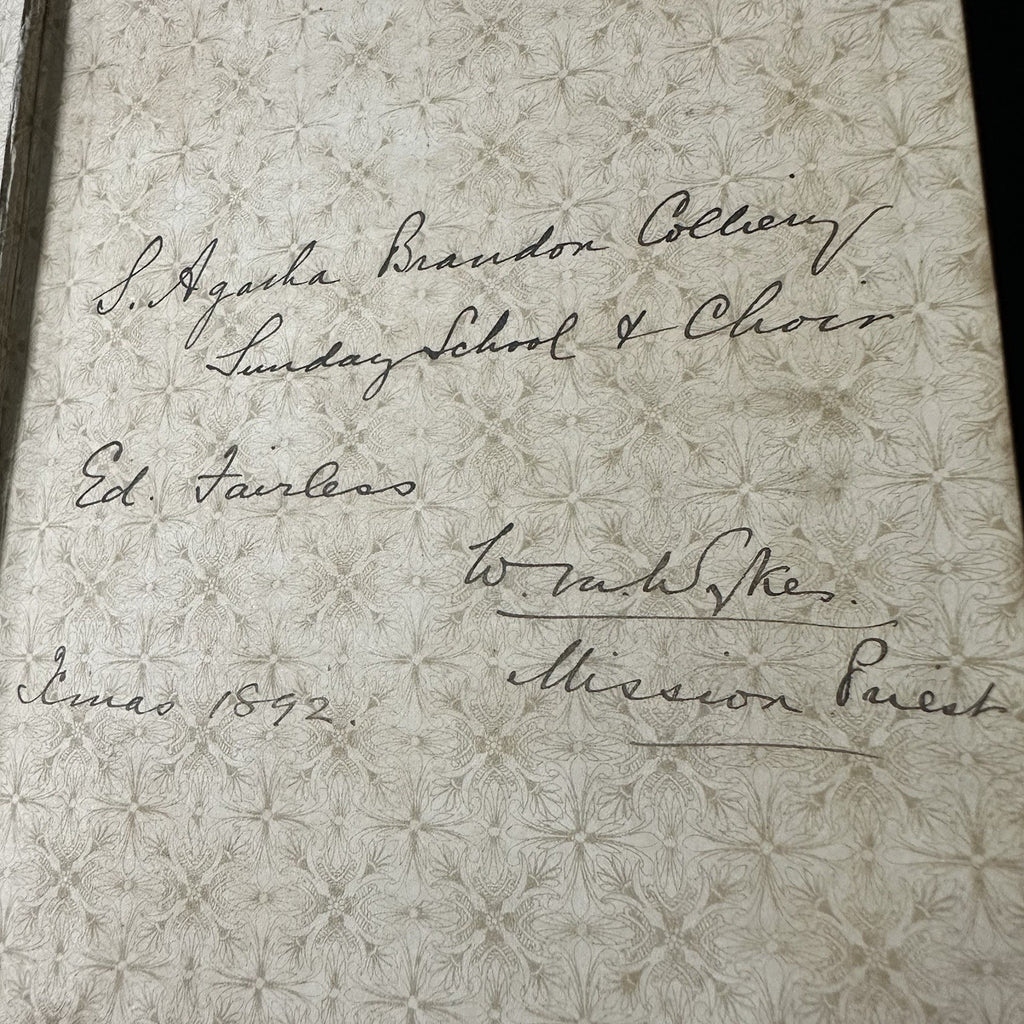 S. Agatha Brandon Colliery
Sunday School & Choir
Ed. Fairless
W. M. Wykes.
Mission Priest
Xmas 1892.